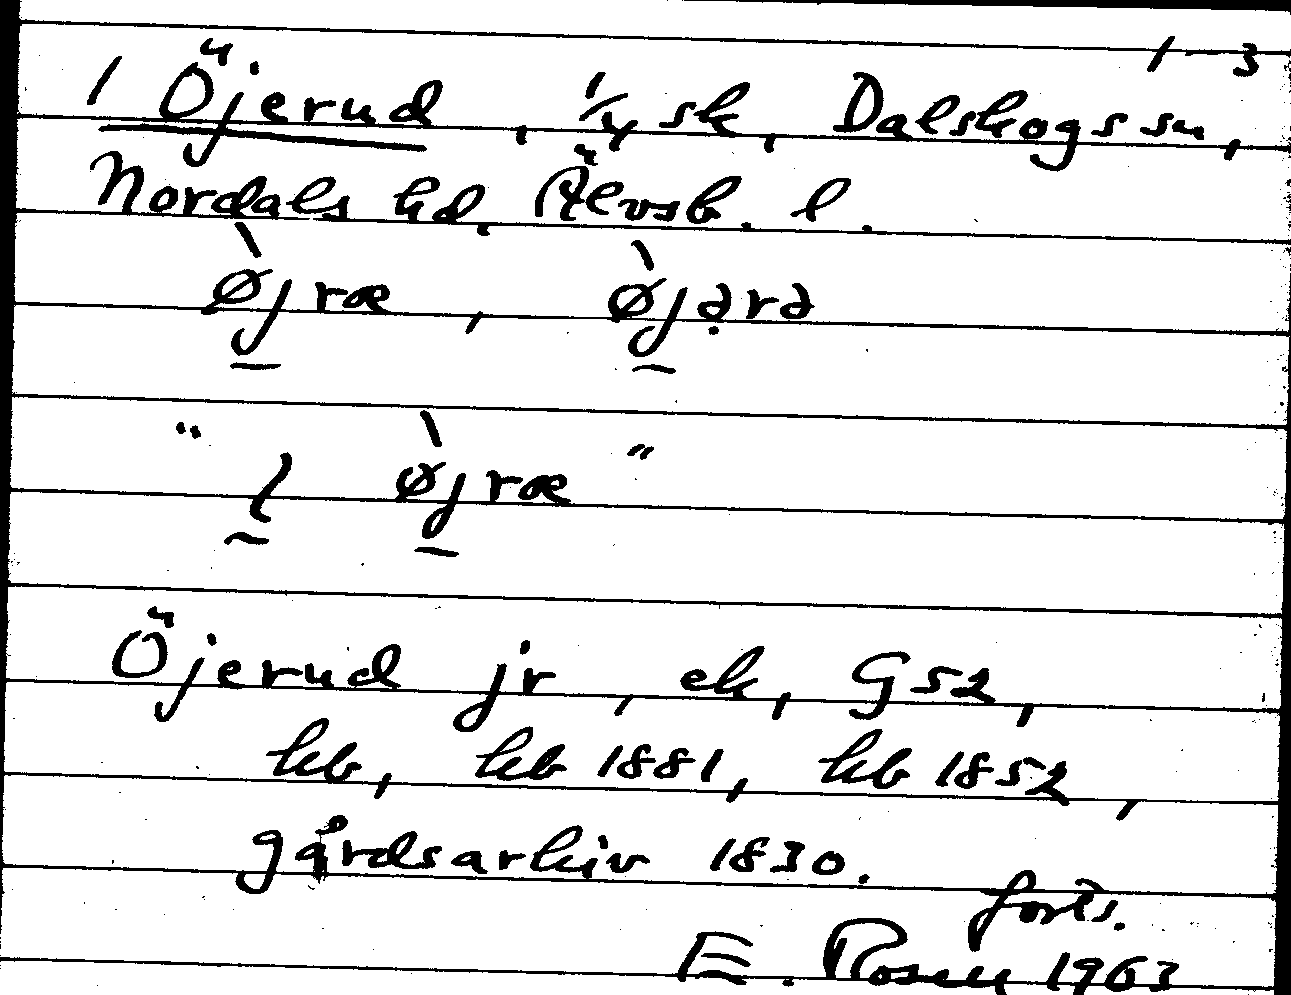 1-3
1 Öjerud, 1/4 sk, Dalskogs sn,
Nordals hd, Älvsb. l.
ø̀j̰ræ, ø̀j̰ə̣rə
" ḭ ø̀j̰ræ "
Öjerud jr, ek, G52,
kb, kb 1881, kb 1852,
gårdsarkiv 1830.
forts.
E. Rosell 1963